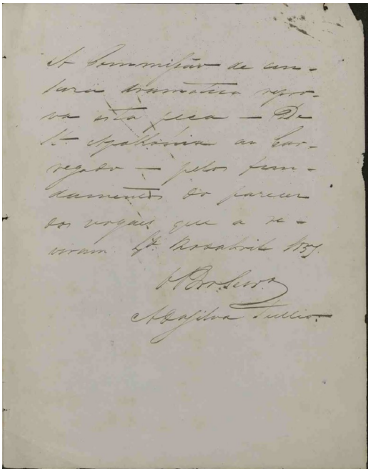 A Commissão de cen-
sura dramatica repro-
va esta peça — De
St.ª Apollonia ao Cor-
regedo — pelos fun-
damentos do parecer
dos vogaes que a re-
viram.
O Professor
A Da Silva Tullio.